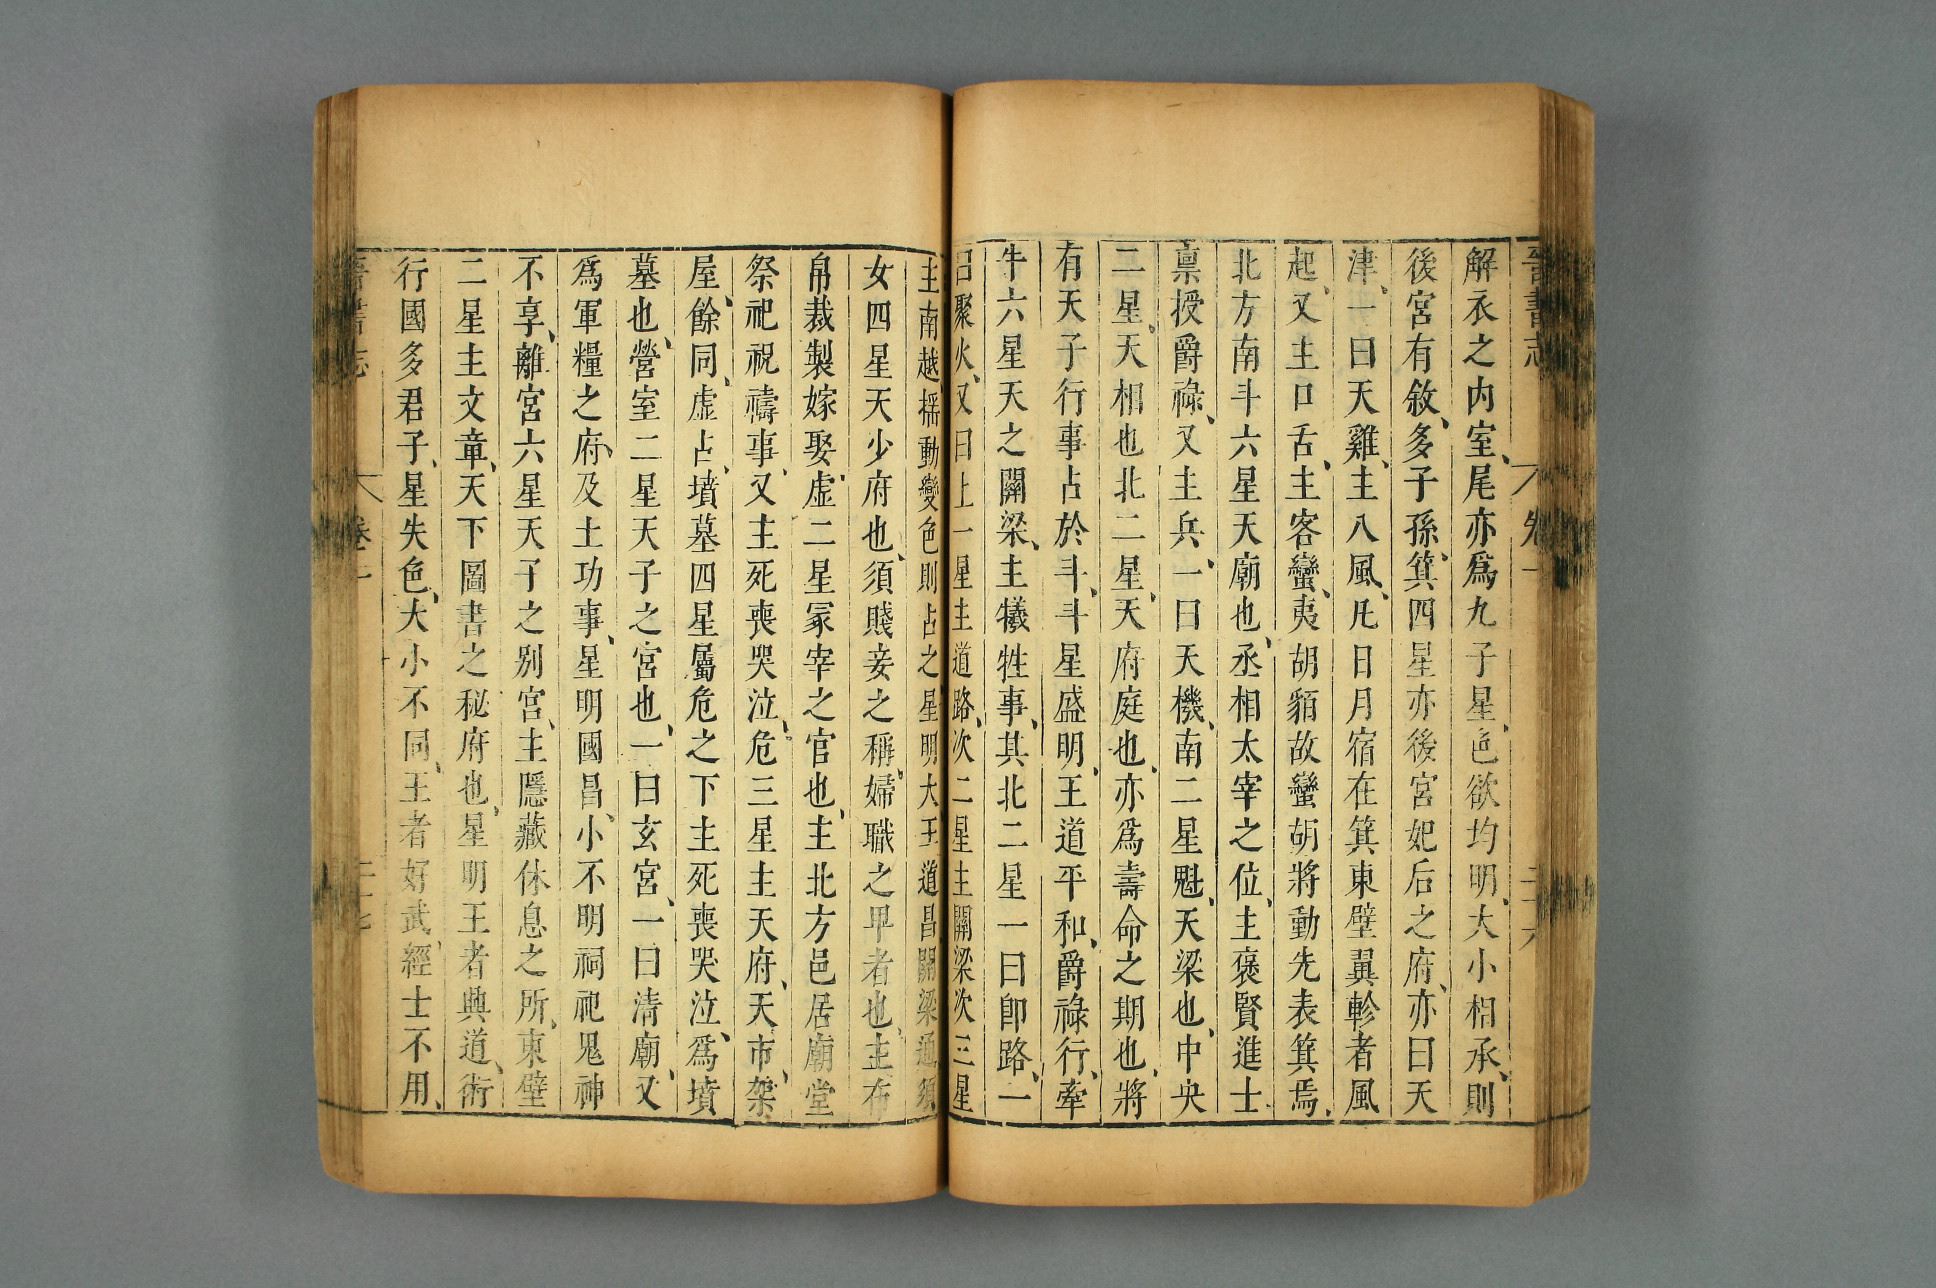 晉書志 卷一 二十六
解衣之内室、尾亦爲九子星、色欲均明、大小相承、則
後宮有敘、多子孫、箕四星亦後宮妃后之府、亦曰天
津、一曰天雞、主八風、凡日月宿在箕東壁翼軫者風
起、又主口舌、主客蠻夷胡貊故蠻胡將動先表箕焉、
北方南斗六星天廟也、丞相太宰之位、主褒賢進士
禀授爵祿、又主兵、一曰天機、南二星魁、天梁也、中央
二星、天相也北二星、天府庭也、亦爲壽命之期也、將
有天子行事占於斗、斗星盛明、王道平和、爵祿行、牽
牛六星天之關梁、主犧牲事、其北二星一曰卽路、一
曰聚火、又曰上一星主道路、次二星主關梁次三星
主南越、搖動變色則占之、星明大、王道昌、關梁通、須
女四星天少府也、須賤妾之稱、婦職之卑者也、主布
帛裁製嫁娶、虛二星冡宰之官也、主北方邑居廟堂
祭祀祝禱事、又主死喪哭泣、危三星主天府、天市、架
屋、餘同、虛占、墳墓四星屬危之下主死喪哭泣、爲墳
墓也、營室二星天子之宮也、一曰玄宮、一曰清廟、又
爲軍糧之府、及土功事、星明國昌、小不明祠祀鬼神
不享、離宮六星天子之别宮、主隱藏休息之所、東壁
二星主文章、天下圖書之秘府也、星明王者興道、術
行國多君子、星失色、大小不同、王者好武、經士不用、
晉書志 卷一 二十七